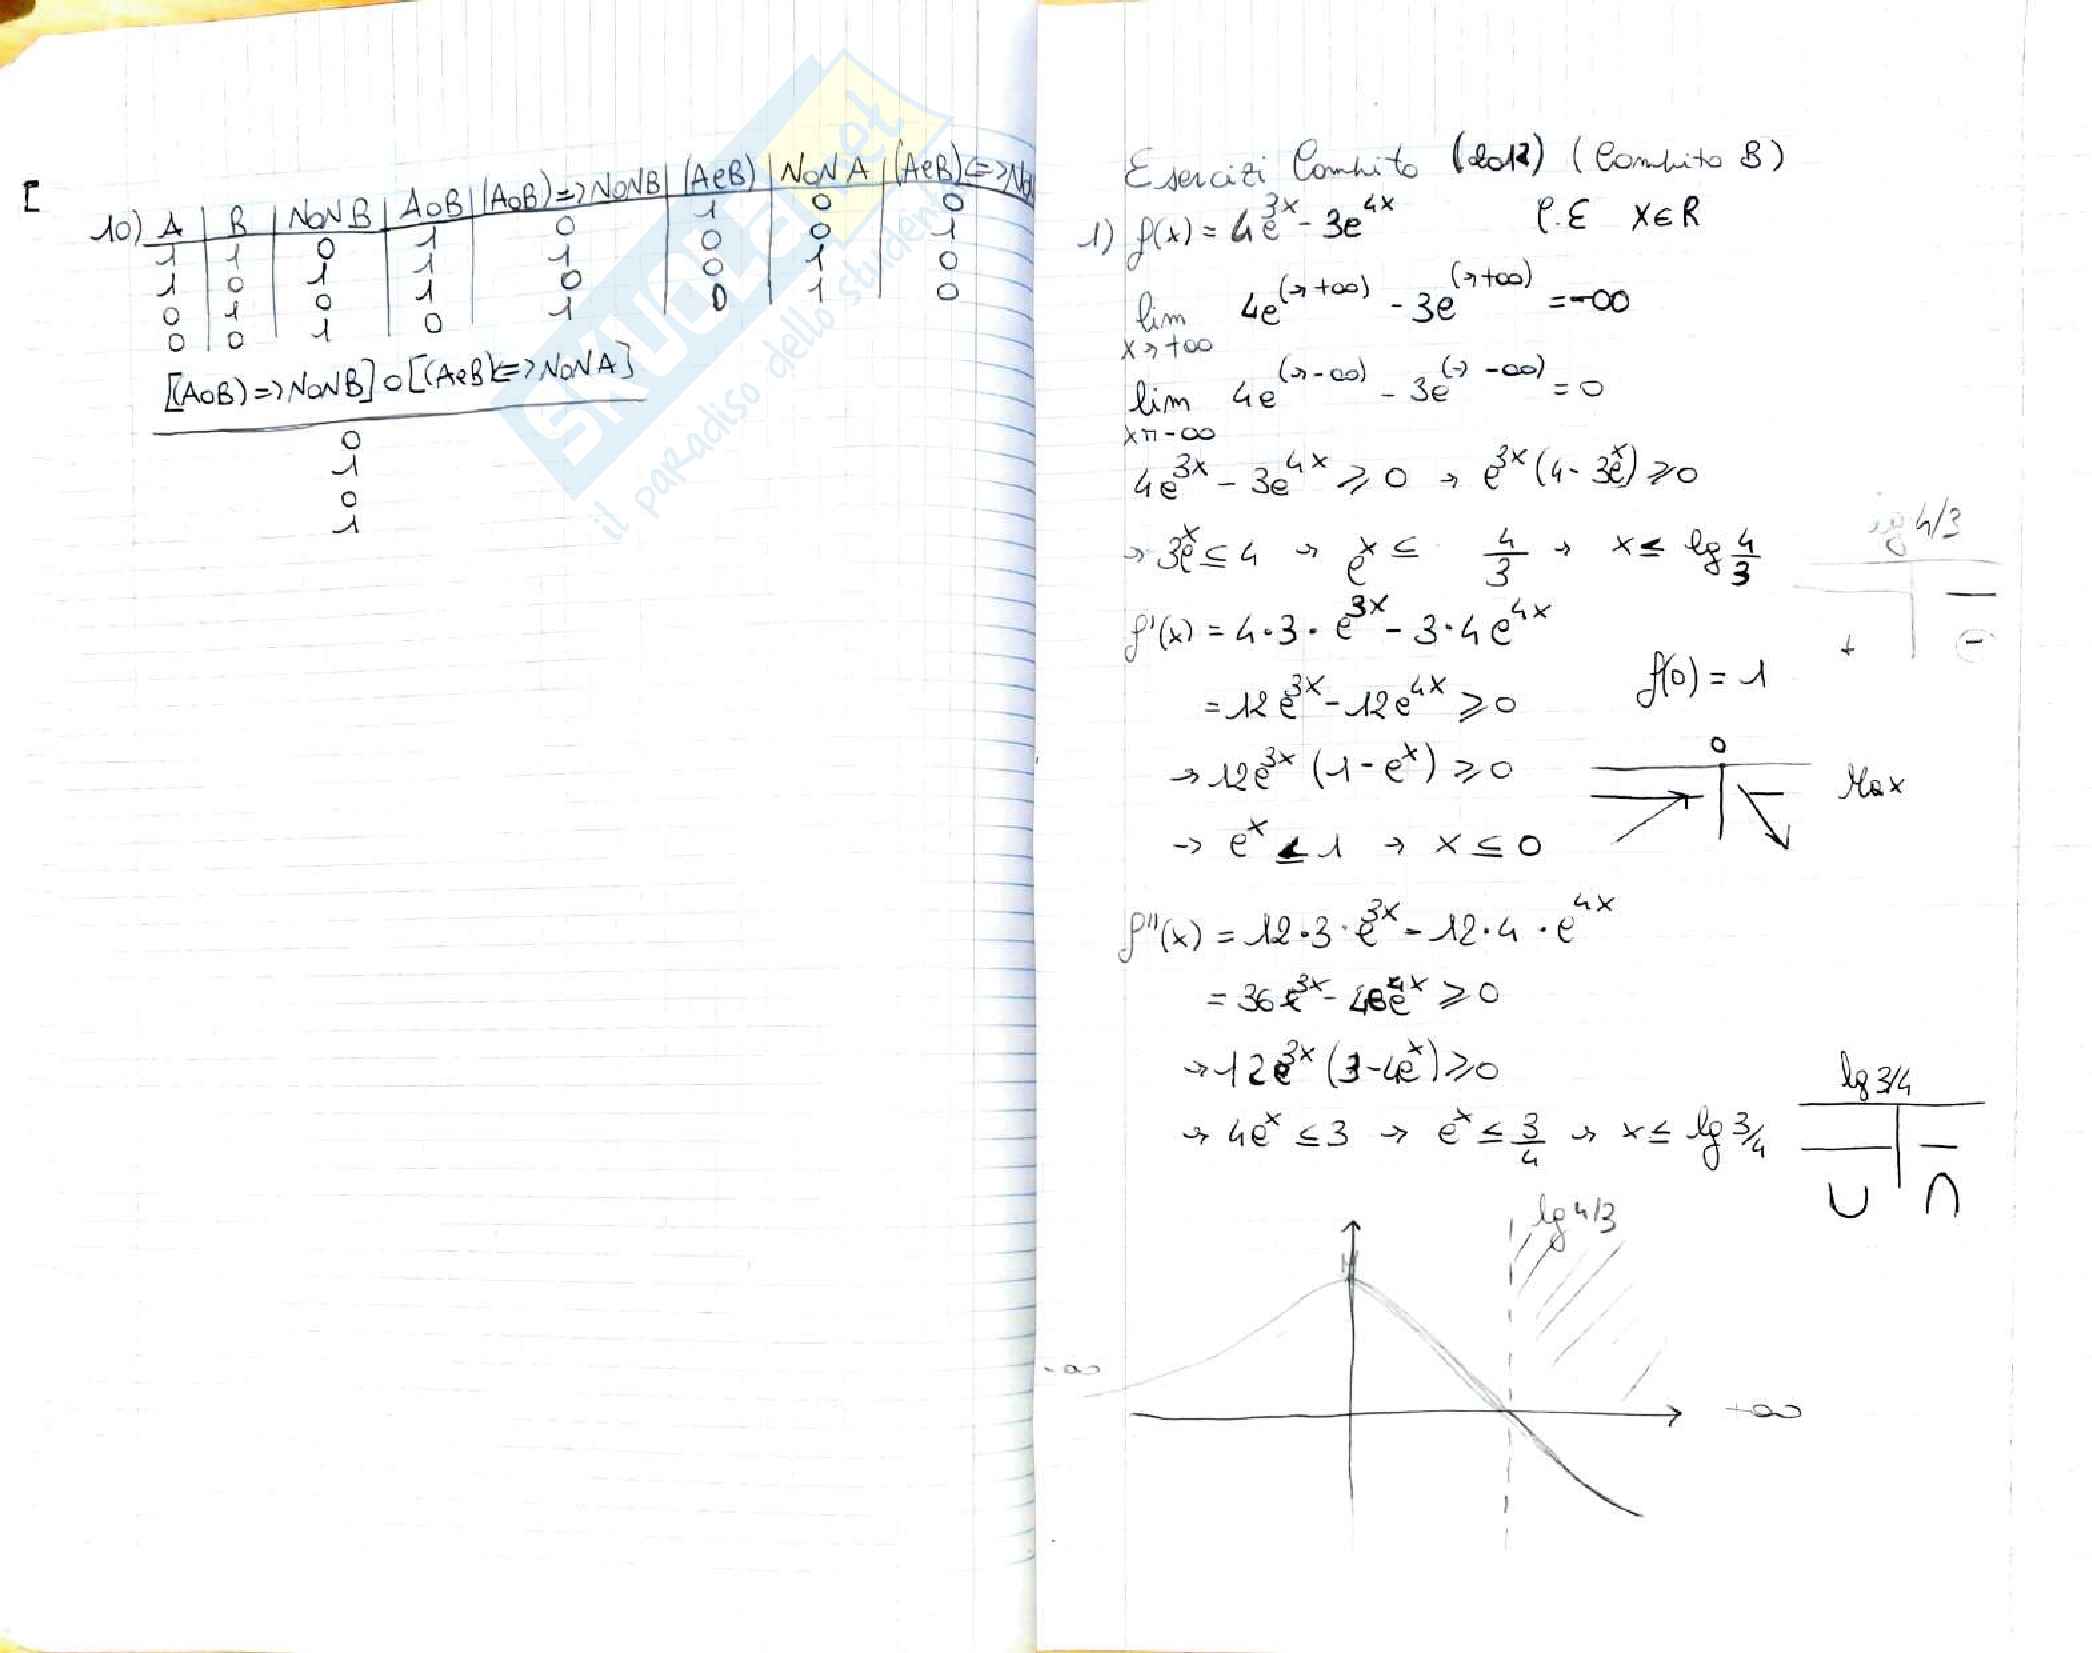 [
10) A | B | NoN B | A o B | (A o B) => NoN B | (A e B) | NoN A | (A e B) <=> No
1 | 1 | 0 | 1 | 0 | 1 | 0 | 0
1 | 0 | 1 | 1 | 1 | 0 | 0 | 1
0 | 1 | 0 | 1 | 0 | 0 | 1 | 0
0 | 0 | 1 | 0 | 1 | 0 | 1 | 0
[(A o B) => NoN B] o [(A e B) <=> NoN A]
0
1
0
1
SKUOLA.net
il paradiso dello studente
Esercizi Compito (2012) (Compito B)
1) f(x) = 4e^{3x} - 3e^{4x} C.E x∈R
lim x→+∞ 4e^{(→+∞)} - 3e^{(→+∞)} = -∞
lim x→-∞ 4e^{(→-∞)} - 3e^{(→-∞)} = 0
4e^{3x} - 3e^{4x} ≥ 0 → e^{3x}(4 - 3e^x) ≥ 0
→ 3e^x ≤ 4 → e^x ≤ 4/3 → x ≤ lg 4/3
lg 4/3
—
+ -
f'(x) = 4·3·e^{3x} - 3·4e^{4x}
= 12e^{3x} - 12e^{4x} ≥ 0
f(0) = 1
→ 12e^{3x}(1 - e^x) ≥ 0
0
Max
→ e^x ≤ 1 → x ≤ 0
f''(x) = 12·3·e^{3x} - 12·4·e^{4x}
= 36e^{3x} - 48e^{4x} ≥ 0
→ 12e^{3x}(3 - 4e^x) ≥ 0
→ 4e^x ≤ 3 → e^x ≤ 3/4 → x ≤ lg 3/4
lg 3/4
∪ ∩
lg 4/3
-∞
+∞